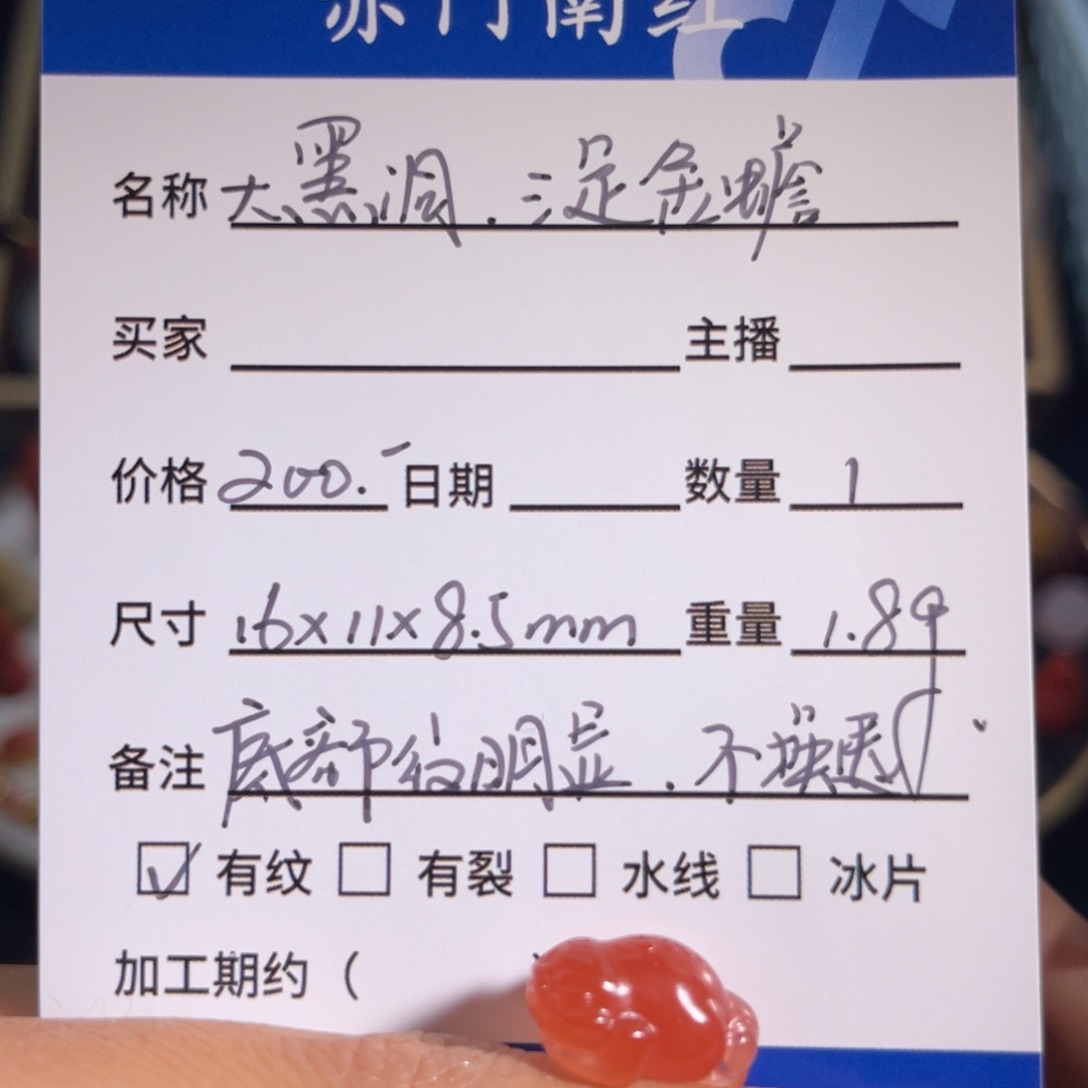 赤门南红
名称 大黑洞.三足金蟾
买家 主播
价格 200.- 日期 数量 1
尺寸 16×11×8.5mm 重量 1.8g
备注 底部纹明显.不换退
☑ 有纹 □ 有裂 □ 水线 □ 冰片
加工期约（